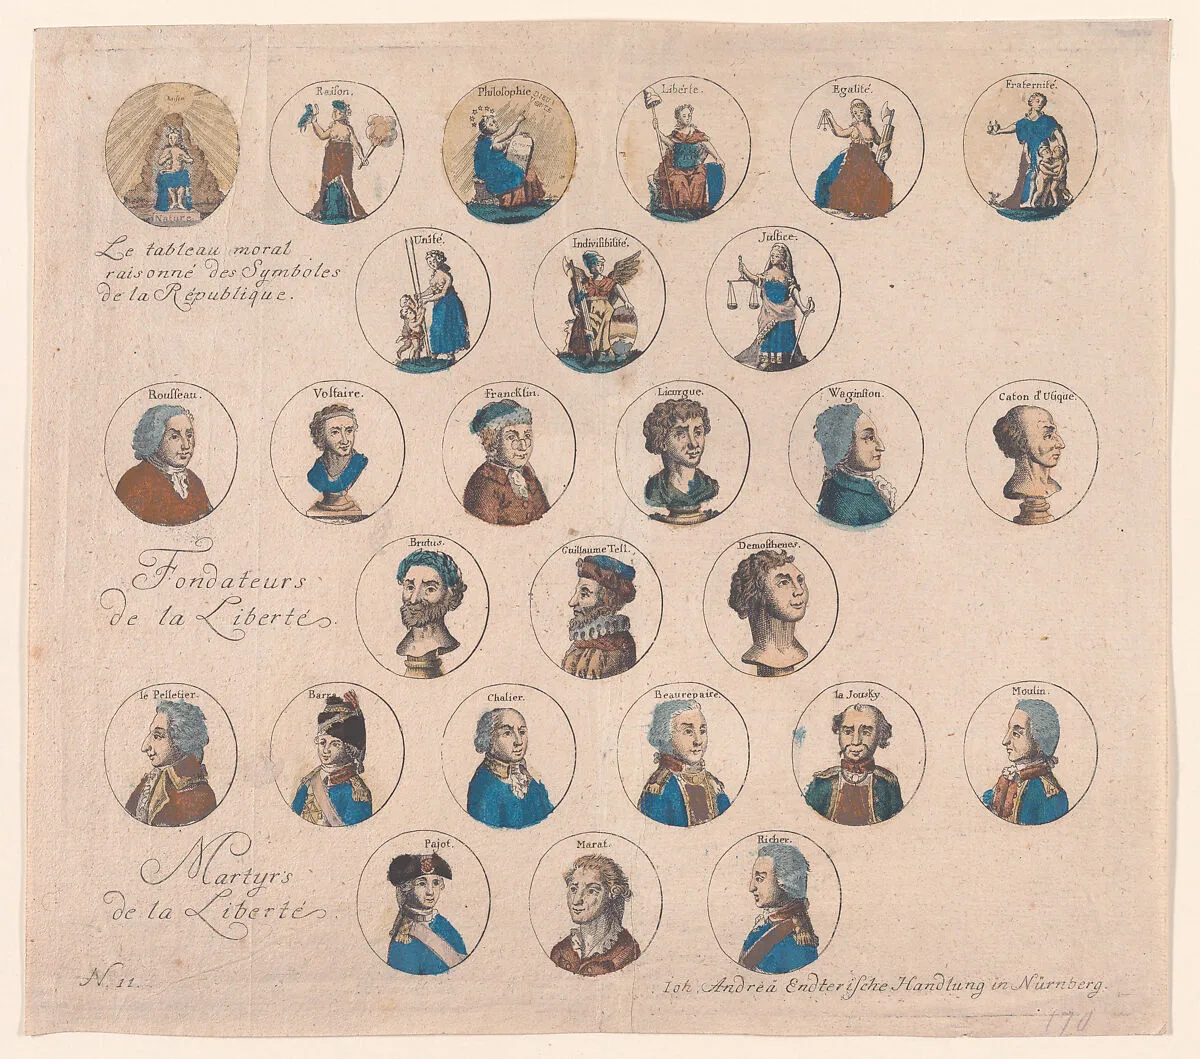 Nature.
Raison.
Philosophie
DIEU
Liberte.
Egalité.
Fraternité.
Le tableau moral
raisonné des Symboles
de la République.
Unité.
Indivisibilité.
Justice.
Rousseau.
Voltaire.
Francklin.
Licurgue.
Waginston.
Caton d'Utique.
Fondateurs
de la Liberté.
Brutus.
Guillaume Tell.
Demosthenes.
le Pelletier.
Barra
Chalier.
Beaurepaire.
la Jousky.
Moulin.
Martyrs
de la Liberté.
Pajot.
Marat.
Richer.
N. 11.
Ioh. Andreä Endterische Handlung in Nürnberg.